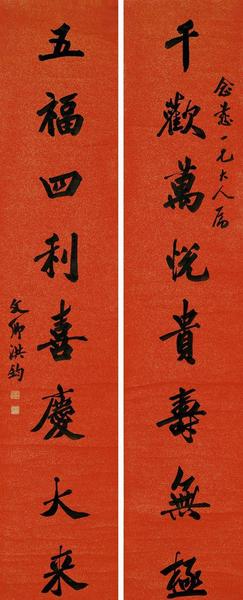 千歡萬悅貴壽無極
一兄大人属
五福四利喜慶大来
文卿洪鈞